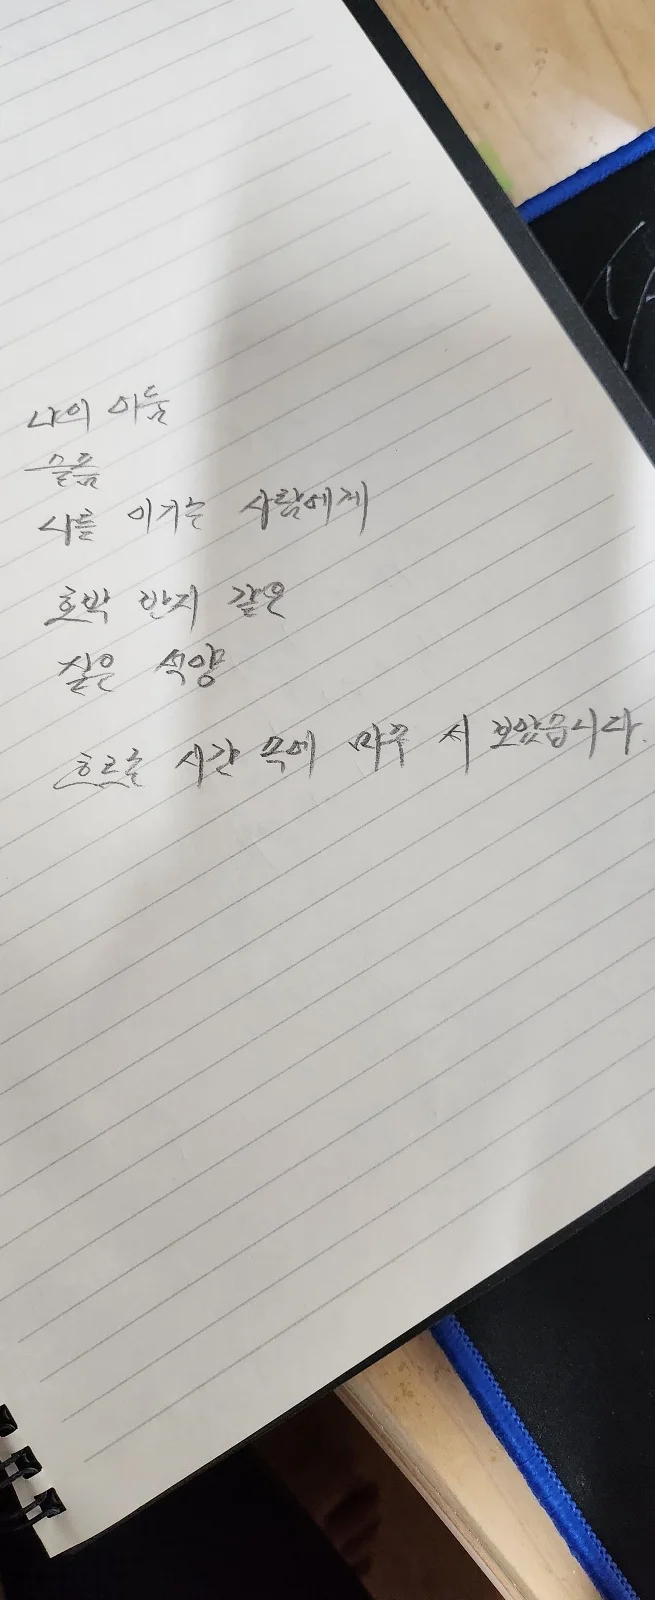 나의 아픔
슬픔
나를 이기는 사람에게
호박 반지 같은
짙은 석양
흐르는 시간 속에 마주 서 보았습니다.